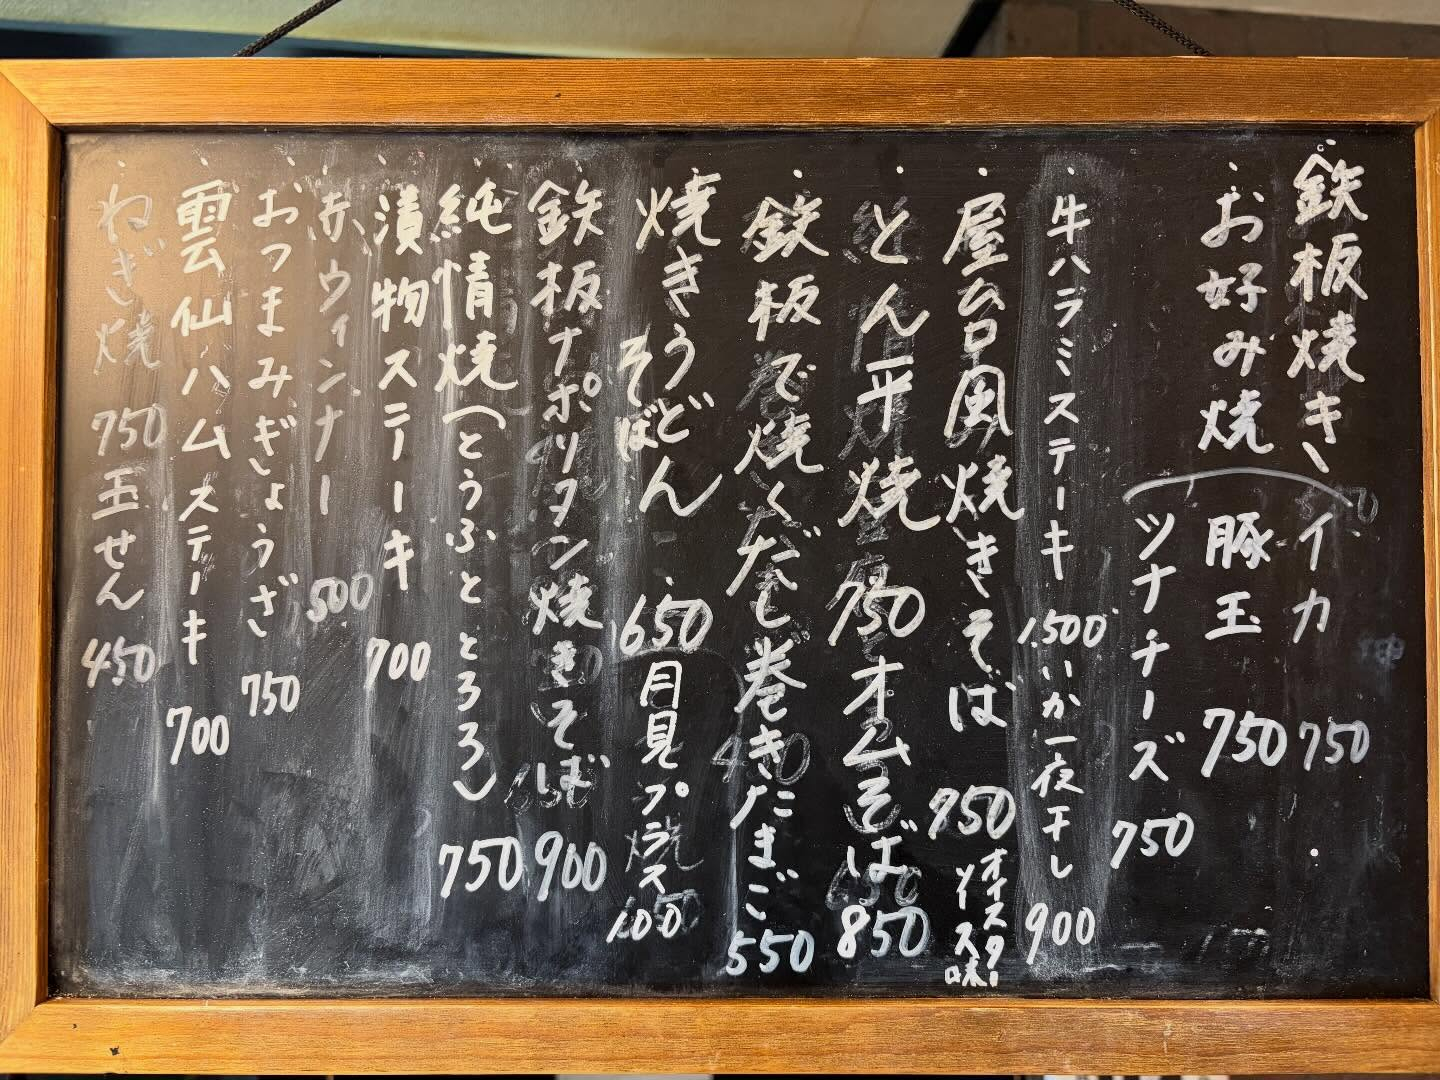 鉄板焼き
お好み焼
イカ 750
豚玉 750
ツナチーズ 750
牛ハラミステーキ 1500
いか一夜干し 900
屋台風焼きそば 750
オイスターソース味
とん平焼 750
オムそば 850
鉄板で焼くだし巻きたまご 550
焼きうどん
そば
650
月見プラス100
鉄板ナポリタン焼きそば 900
純情焼(とうふととろろ) 750
漬物ステーキ 700
赤ウィンナー 500
おつまみぎょうざ 750
雲仙ハムステーキ 700
ねぎ焼 750
玉せん 450